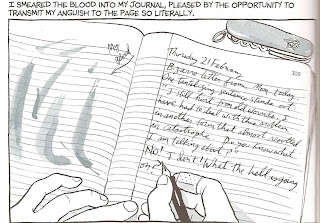 I SMEARED THE BLOOD INTO MY JOURNAL, PLEASED BY THE OPPORTUNITY TO
TRANSMIT MY ANGUISH TO THE PAGE SO LITERALLY.
Thursday 21 February
Bizarre letter from Mom today.
One terrifying sentence stands out.
"I still hurt from old wounds. I
have had to deal with this problem
in another form that almost resulted
in catastrophe. Do you know what
I am talking about?"
No! I don't! What the hell is going
on?